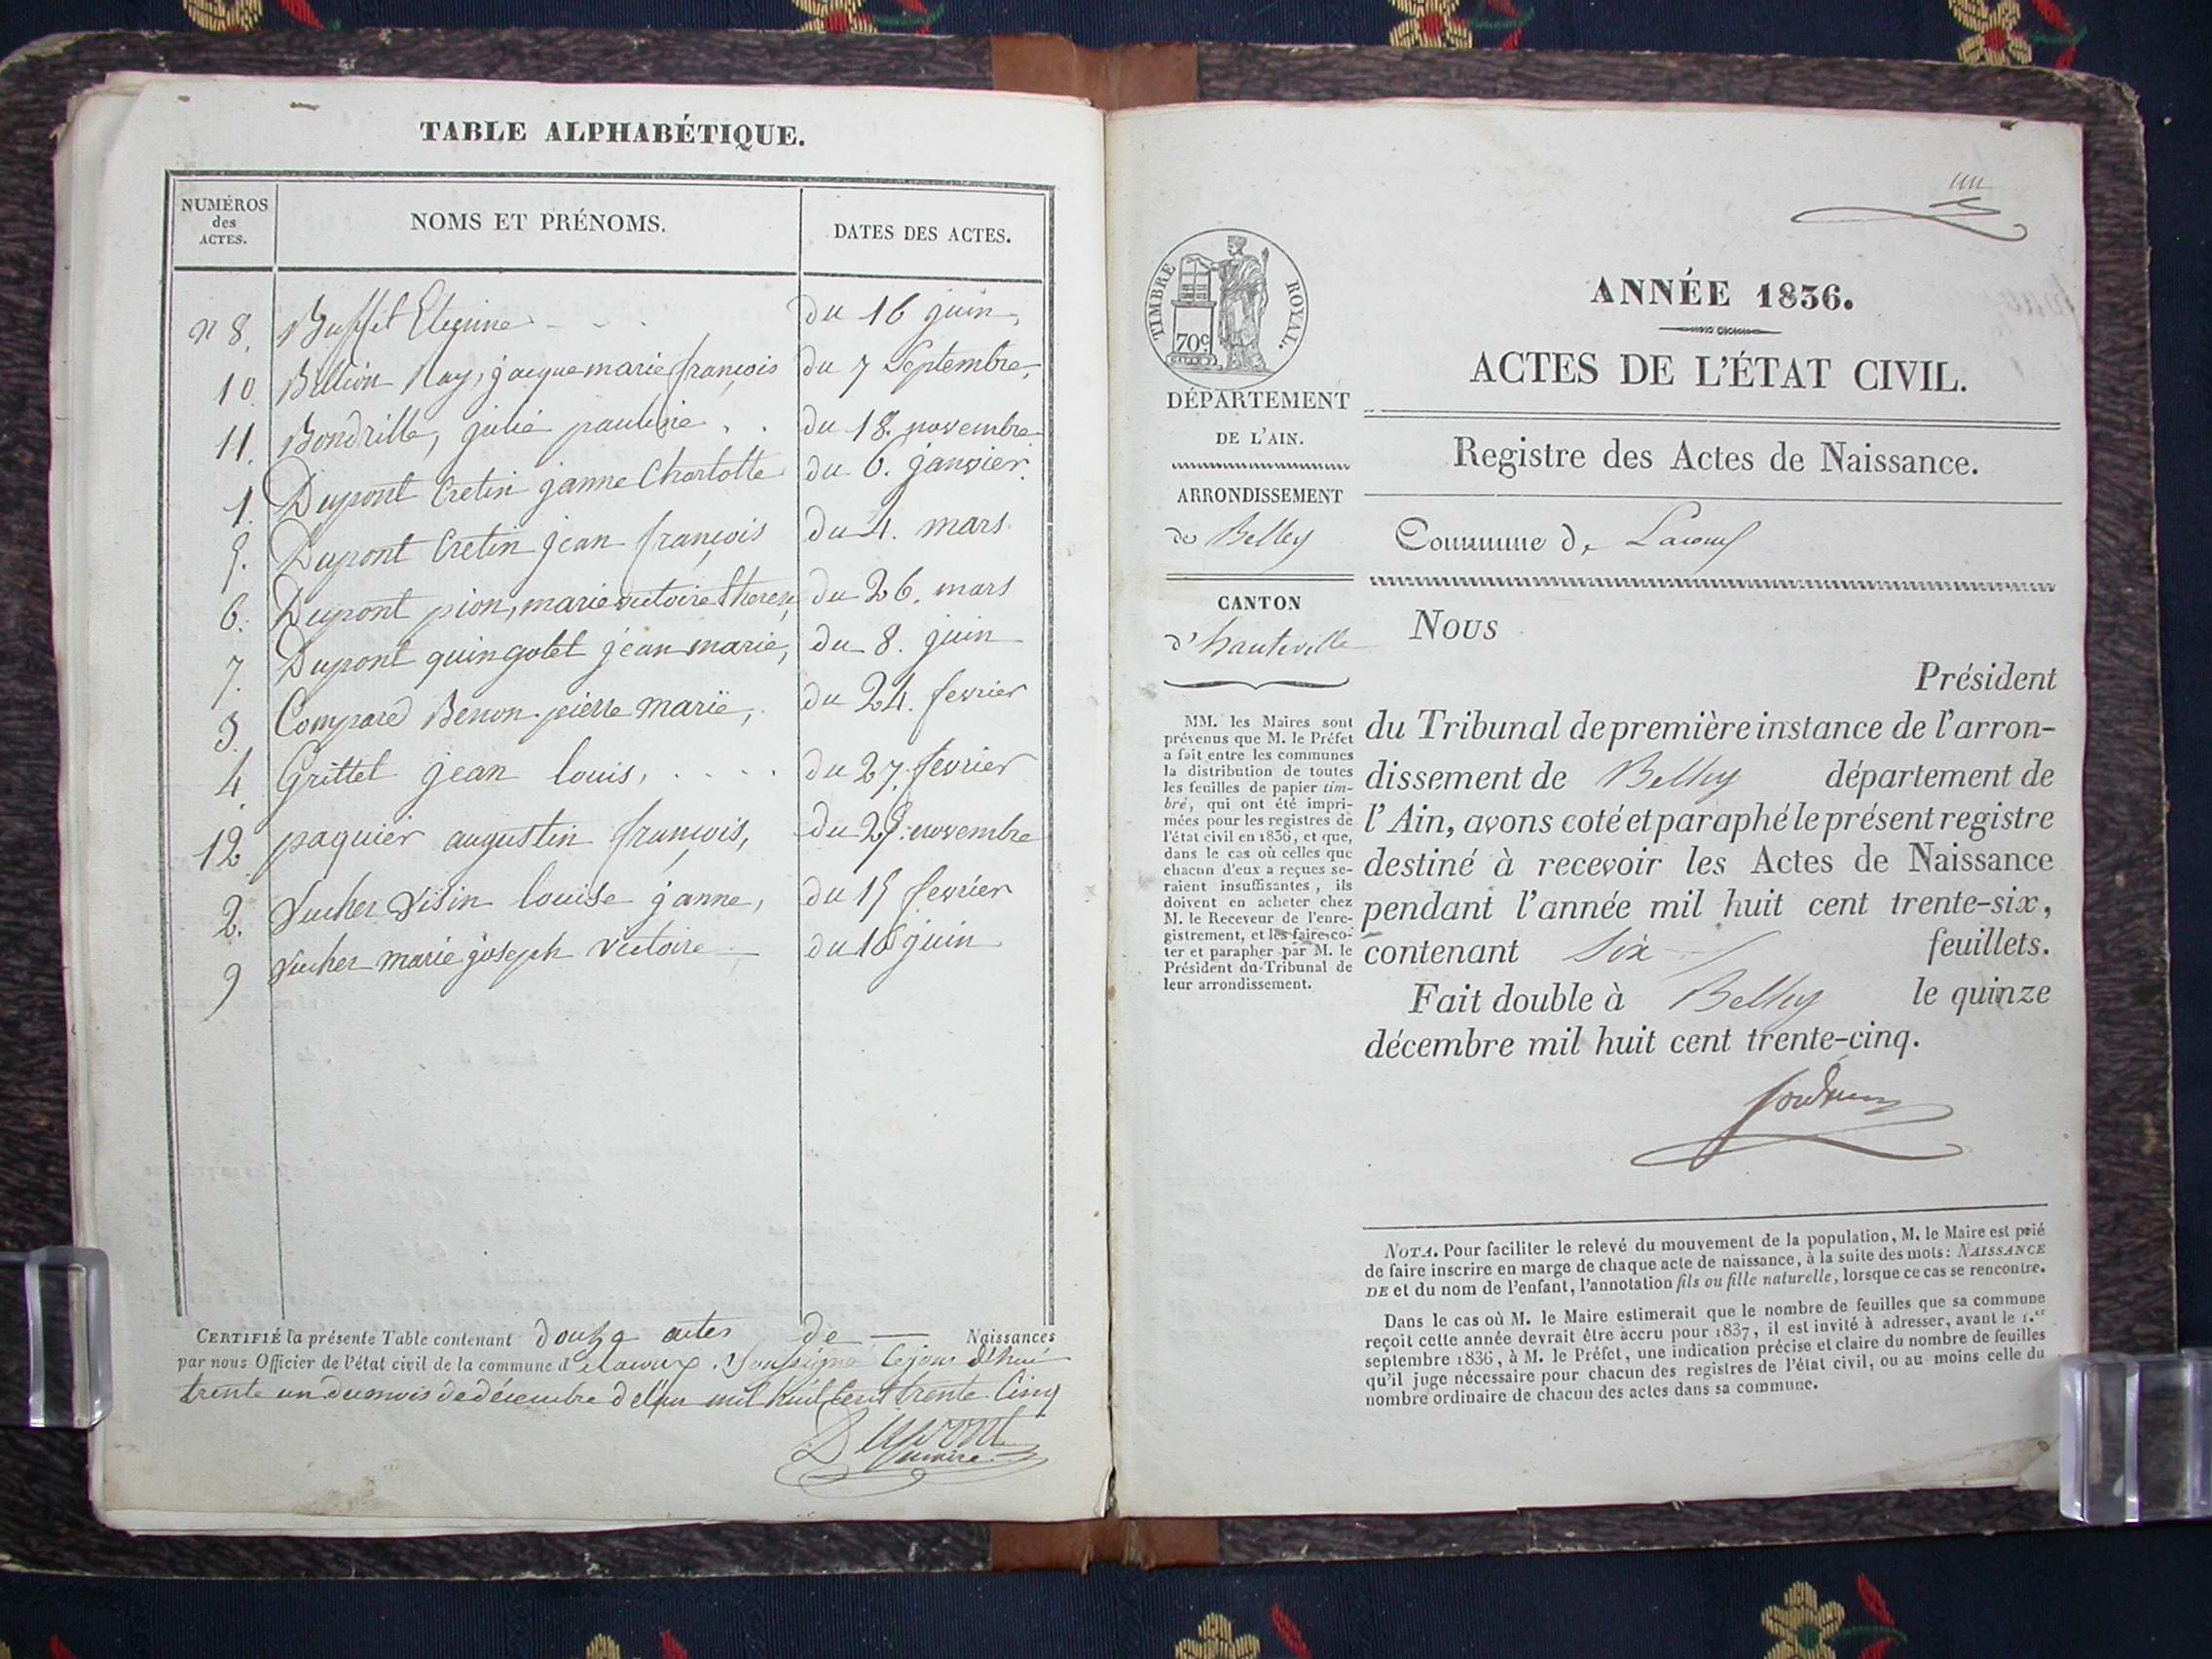 TABLE ALPHABÉTIQUE.
NUMÉROS des ACTES. NOMS ET PRÉNOMS. DATES DES ACTES.
n 8. Buffet Etienne du 16 juin,
10. Billion Ray, jacque marie françois du 7 Septembre,
11. Bondrille, julie pauline du 18. novembre
1. Dupont Cretin janne Charlotte du 6. janvier.
5. Dupont Cretin jean françois du 4. mars
6. Dupont pion, marie victoire therese, du 26. mars
7. Dupont quingotet jean marie, du 8. juin
3. Compare Benon pierre marie, du 24. fevrier
4. Grittet jean louis, du 27. fevrier
12. paquier augustin françois, du 25. novembre
2. Vucher Visin louise janne, du 15 fevrier
9 Vucher marie joseph victoire du 16 juin
CERTIFIÉ la présente Table contenant douze actes de — Naissances
par nous Officier de l'état civil de la commune d'elacoux. Soussigné le jour d'hui
trente un du mois de décembre de l'an mil huit Cent trente Cinq
Dupont
maire
un
TIMBRE ROYAL.
70c.
ANNÉE 1836.
ACTES DE L'ÉTAT CIVIL.
Registre des Actes de Naissance.
Commune de Lacoux
DÉPARTEMENT
DE L'AIN.
ARRONDISSEMENT
de Belley
CANTON
d'hauteville
MM. les Maires sont
prévenus que M. le Préfet
a fait entre les communes
la distribution de toutes
les feuilles de papier tim-
bré, qui ont été impri-
mées pour les registres de
l'état civil en 1836, et que,
dans le cas où celles que
chacun d'eux a reçues se-
raient insuffisantes, ils
doivent en acheter chez
M. le Receveur de l'enre-
gistrement, et les faire co-
ter et parapher par M. le
Président du Tribunal de
leur arrondissement.
Nous
Président
du Tribunal de première instance de l'arron-
dissement de Belley département de
l'Ain, avons coté et paraphé le présent registre
destiné à recevoir les Actes de Naissance
pendant l'année mil huit cent trente-six,
contenant Six feuillets.
Fait double à Belley le quinze
décembre mil huit cent trente-cinq.
NOTA. Pour faciliter le relevé du mouvement de la population, M. le Maire est prié
de faire inscrire en marge de chaque acte de naissance, à la suite des mots: NAISSANCE
DE et du nom de l'enfant, l'annotation fils ou fille naturelle, lorsque ce cas se rencontre.
Dans le cas où M. le Maire estimerait que le nombre de feuilles que sa commune
reçoit cette année devrait être accru pour 1837, il est invité à adresser, avant le 1.er
septembre 1836, à M. le Préfet, une indication précise et claire du nombre de feuilles
qu'il juge nécessaire pour chacun des registres de l'état civil, ou au moins celle du
nombre ordinaire de chacun des actes dans sa commune.